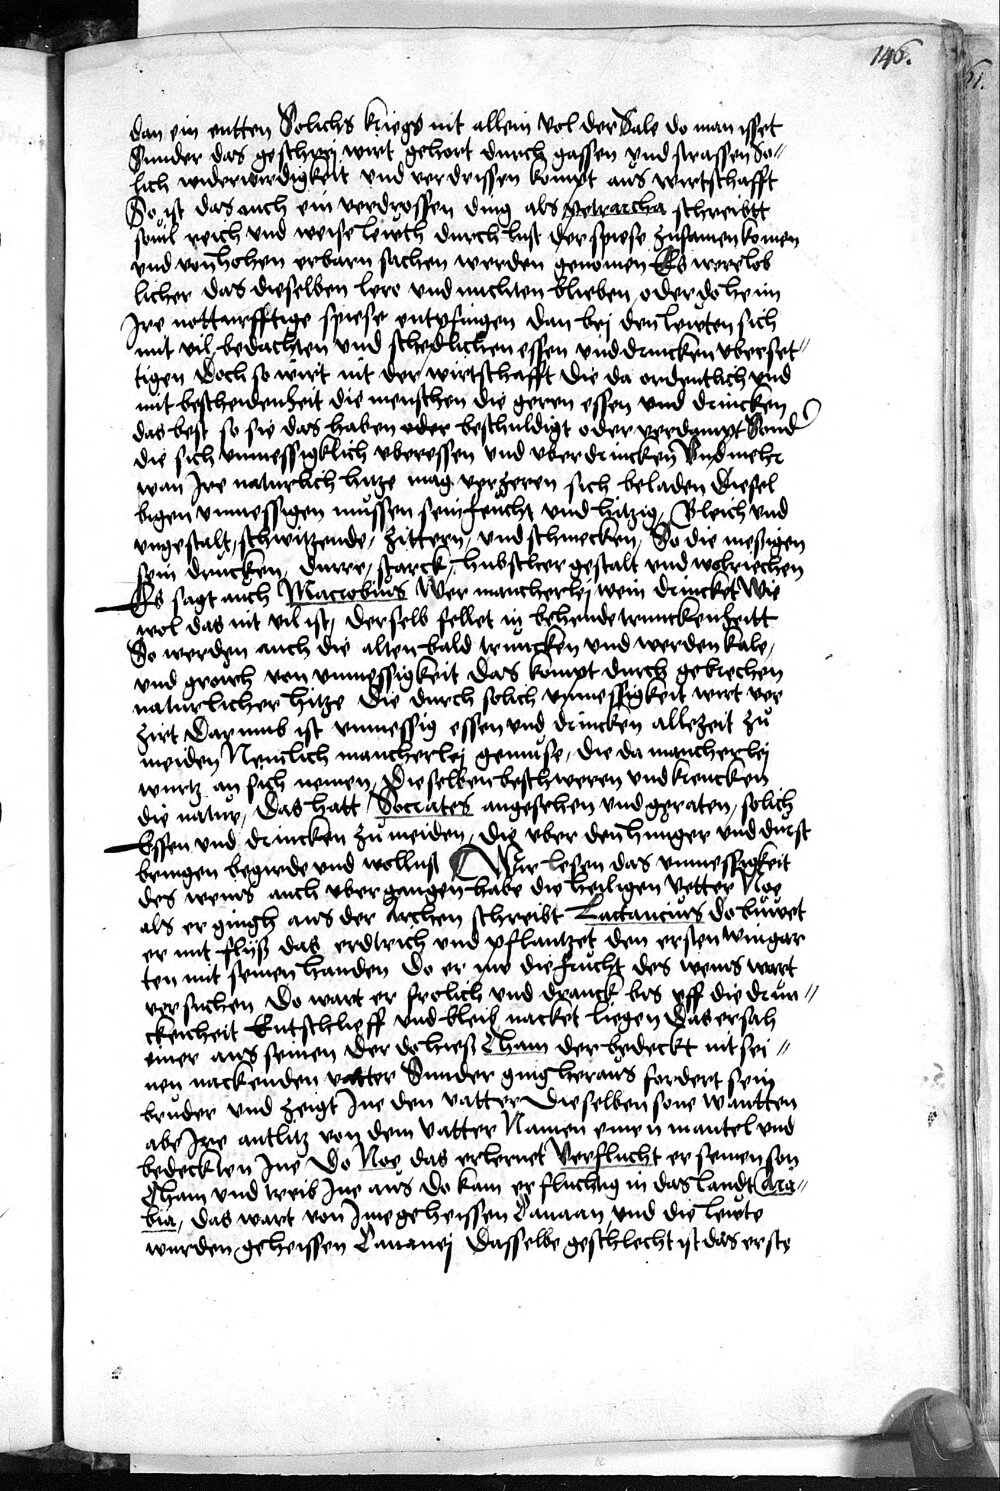 146.
dan ein entten Solichs kriegs nit allein vol der Sale do man isset
Sunder das geschrey wirt gehort durch gassen vnd strassen So-
lich widerwirdigkeit vnd verdrissen kompt aus wirtschafft
So ist das auch ein verdrossen ding als petrarcha schreibtt
souil reich vnd weise lewth durch lust der spiese zusamen komen
vnd von hohen erbarn sachen werden genomen Es were lob
licher das dieselben lere vnd nuchten blieben, oder doheim
Ire notturfftige spiese entpfingen dan bej den lewten sich
mit vil bedachten vnd schedlichen essen vnd drincken vberset-
tigen Doch so wirt nit der wirtschafft die da ordentlich vnd
mit bescheidenheit die menschen die geren essen vnd drincken
das best so sie das haben oder beschuldigt oder verdampt Sond
die sich vnmessigklich vberessen vnd vberdrincken Vnd mehr
wan Ire naturlich hitze mag verzeren sich beladen Diesel
bigen vnmessigen mussen sein feucht vnd hitzig, Bleich vnd
vngestalt, schwitzende, zittern, vnd schmecken, So die messigen
sein drucken, durre, starck, hubscher gestalt vnd wolriechen
Es sagt auch Macrobius Wer mancherlej wein drincket Wie
wol das nit vil ist, derselb fellet in behende trunckenheitt
So werden auch die alten bald truncken vnd werden kale,
vnd growh von vnmessigkeit das kompt durch gebrechen
naturlicher hitze die durch solich vnmessigkeit wirt ver
zirt Darumb ist vnmessig essen vnd drincken allezeit zu
meiden Nemlich mancherlej gemuse, die da mancherlej
wurtz an sich nemen, Dieselben beschweren vnd krencken
die natur, Das hatt Socrates angesehen vnd geraten, solich
Essen vnd drincken zu meiden, Die vber den hunger vnd durst
bringen begirde vnd wollust Wir lesen das vnmessigkeit
des weins auch vbergangen habe die heiligen vetter Noe
als er gingh aus der Archen schreibt Lactancius Do buwet
er mit flyß das erdtrich vnd pflantzet den ersten wingar
ten mit seinen handen Do er nw die frucht des weins wart
versuchen Do wart er frolich vnd dranck bis vff die drun-
ckenheit Entschlieff vnd bleib nacket liegen Das ersah
einer aus seinen der do hieß Cham der bedeckt nit sei-
nen nackenden vatter Sunder ging heraus fordert sein
bruder vnd zeigt Ine den vatter Dieselben sone wantten
abe Ire antlitz von dem vatter Namen einen mantel vnd
bedeckten Ine Do Noe das erlernet verflucht er seinen son
Cham vnd treib Ine aus Do kam er fluchtig in das landt Ara-
bia, das wart von Ime geheissen Canaan, vnd die lewte
wurden geheissen Cananej Dasselbe geschlecht ist das erste